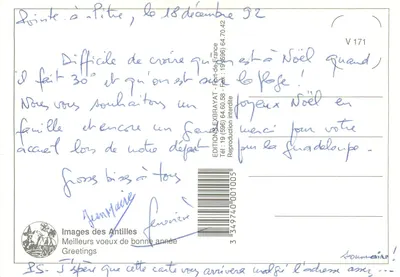 Pointe à Pitre, le 18 décembre 92
Difficile de croire qu'on est à Noël quand
il fait 30° et qu'on est sur la plage!
Nous vous souhaitons un joyeux Noël en
famille et encore un grand merci pour votre
accueil lors de notre départ pour la Guadeloupe.
Grosses bises à tous
Geneviève
V 171
EDITIONS EXBRAYAT
Reproduction interdite
3 349740 001005
Images des Antilles
Meilleurs voeux de bonne année
Greetings
PS. J'espère que cette carte vous arrivera malgré l'adresse assez
sommaire!